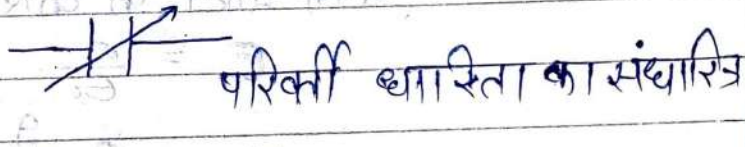 परिवर्ती धारिता का संधारित्र